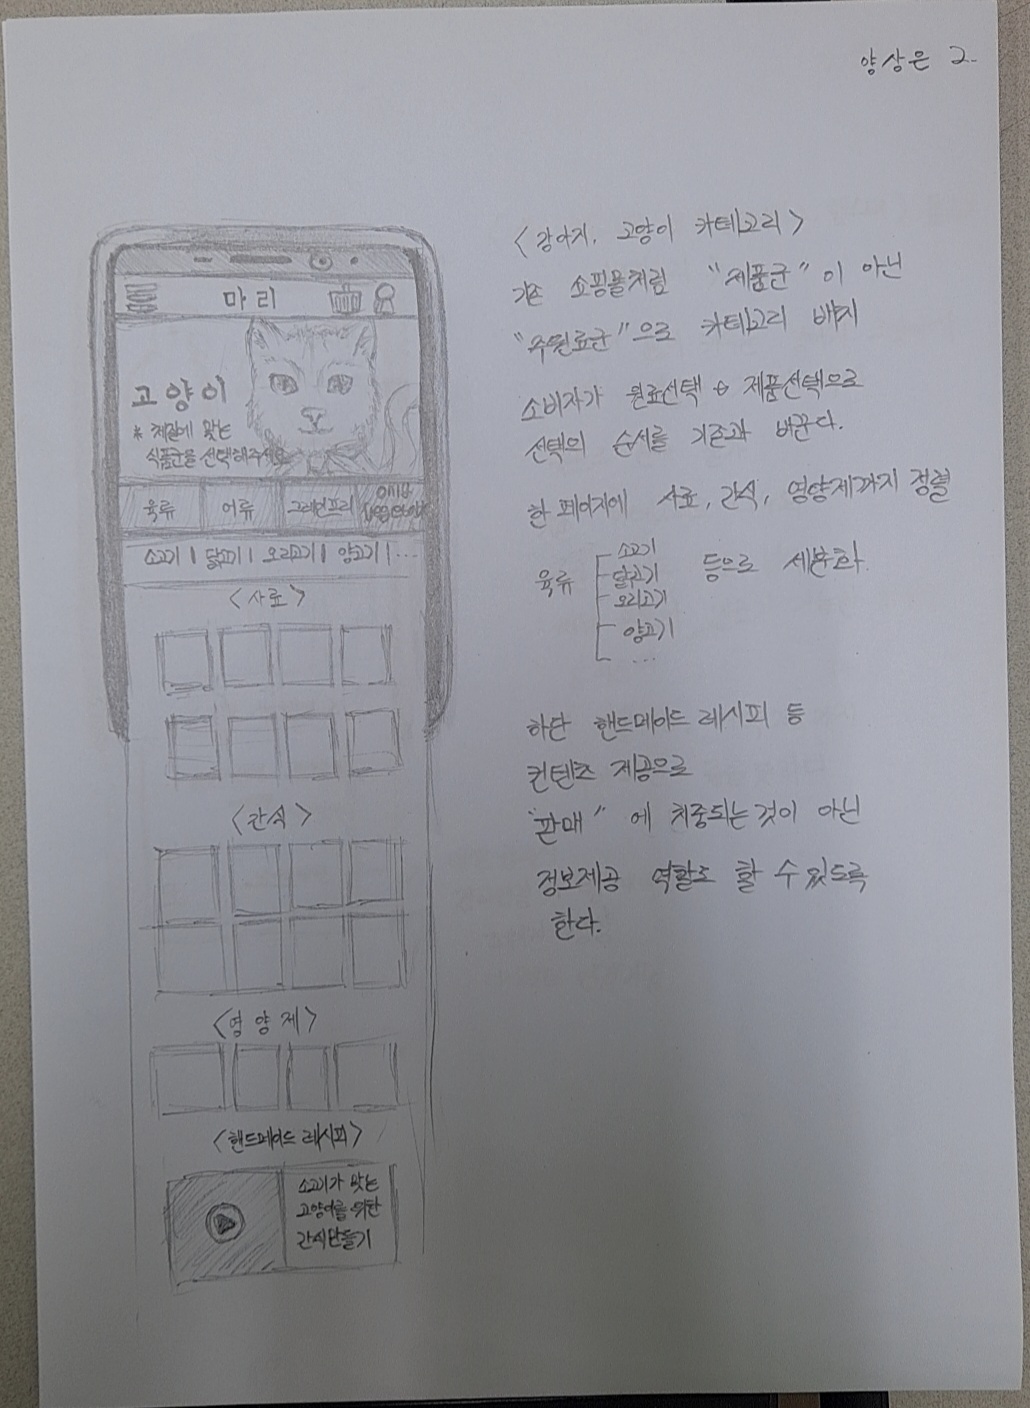 양상은 2.
마리
고양이
* 체질에 맞는
식품군을 선택해주세요
육류 어류 그레인프리
소고기 | 닭고기 | 오리고기 | 양고기 | ...
<사료>
<간식>
<영양제>
<핸드메이드 레시피>
소고기가 맞는
고양이를 위한
간식만들기
<강아지, 고양이 카테고리>
기존 쇼핑몰처럼 "제품군"이 아닌
"주원료군"으로 카테고리 배치
소비자가 원료선택 → 제품선택으로
선택의 순서를 기존과 바꾼다.
한 페이지에 사료, 간식, 영양제까지 정렬
육류
소고기
닭고기
오리고기
양고기
...
등으로 세분화.
하단 핸드메이드 레시피 등
컨텐츠 제공으로
"판매"에 치중되는것이 아닌
정보제공 역할도 할 수 있도록
한다.